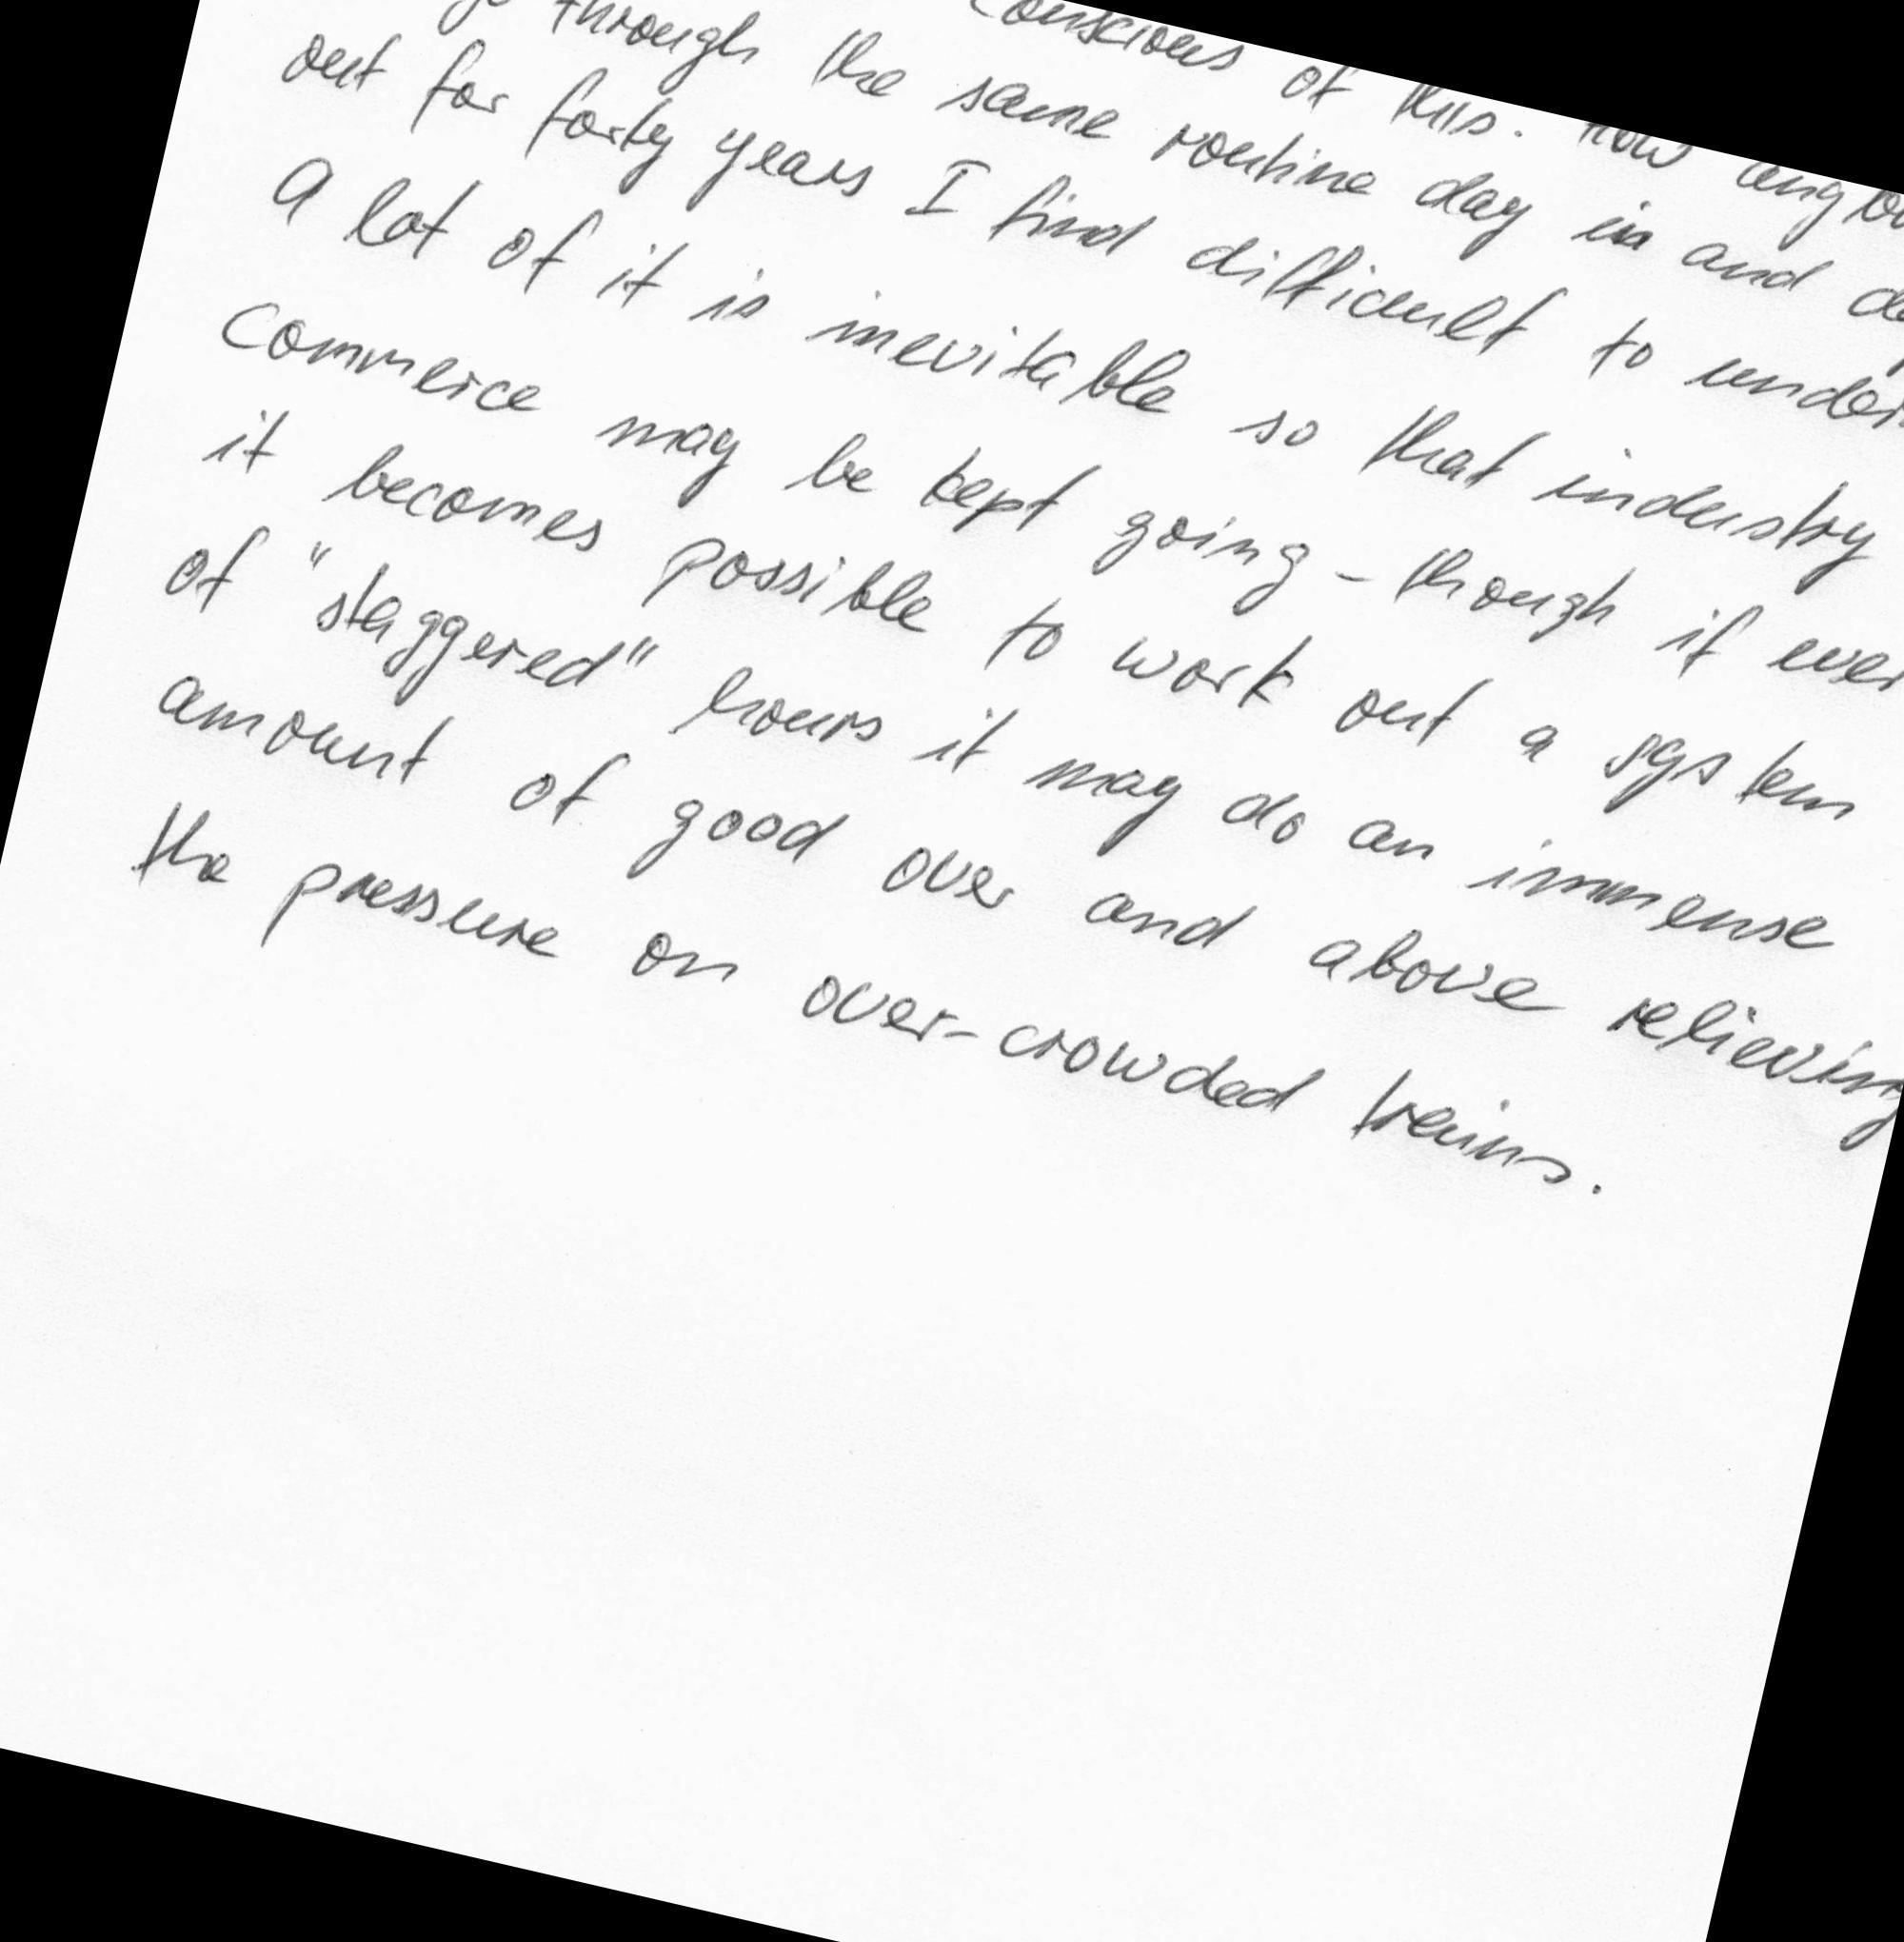 conscious of this. How
through the same routine day in and
out for forty years I find difficult to
A lot of it is inevitable so that industry
commerce may be kept going - though if ever
it becomes possible to work out a system
of "staggered" hours it may do an immense
amount of good over and above relieving
the pressure on over-crowded trains.